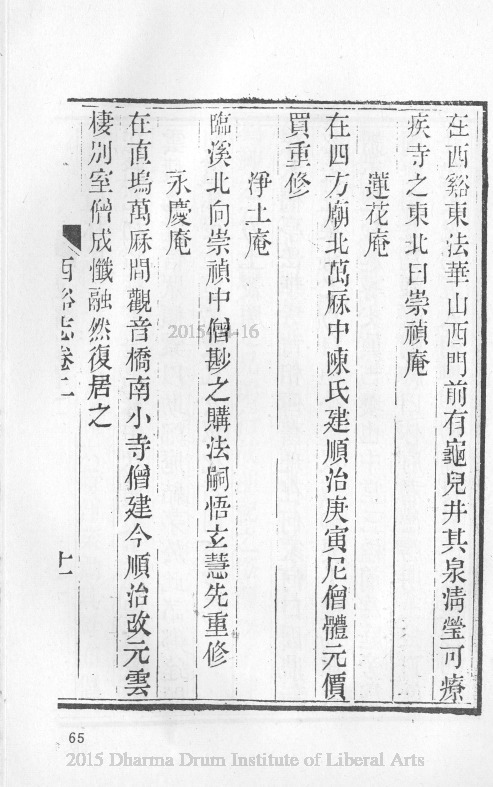 在西谿東法華山西門前有龜兒井其泉清瑩可療
疾寺之東北曰崇禎庵
蓮花庵
在四方廟北萬厤中陳氏建順治庚寅尼僧體元價
買重修
淨土庵
臨溪北向崇禎中僧尠之購法嗣悟玄慧先重修
永慶庵
在直塢萬厤間觀音橋南小寺僧建今順治改元雲
棲別室僧成懺融然復居之
西谿志卷二
十一
2015
16
65
2015 Dharma Drum Institute of Liberal Arts